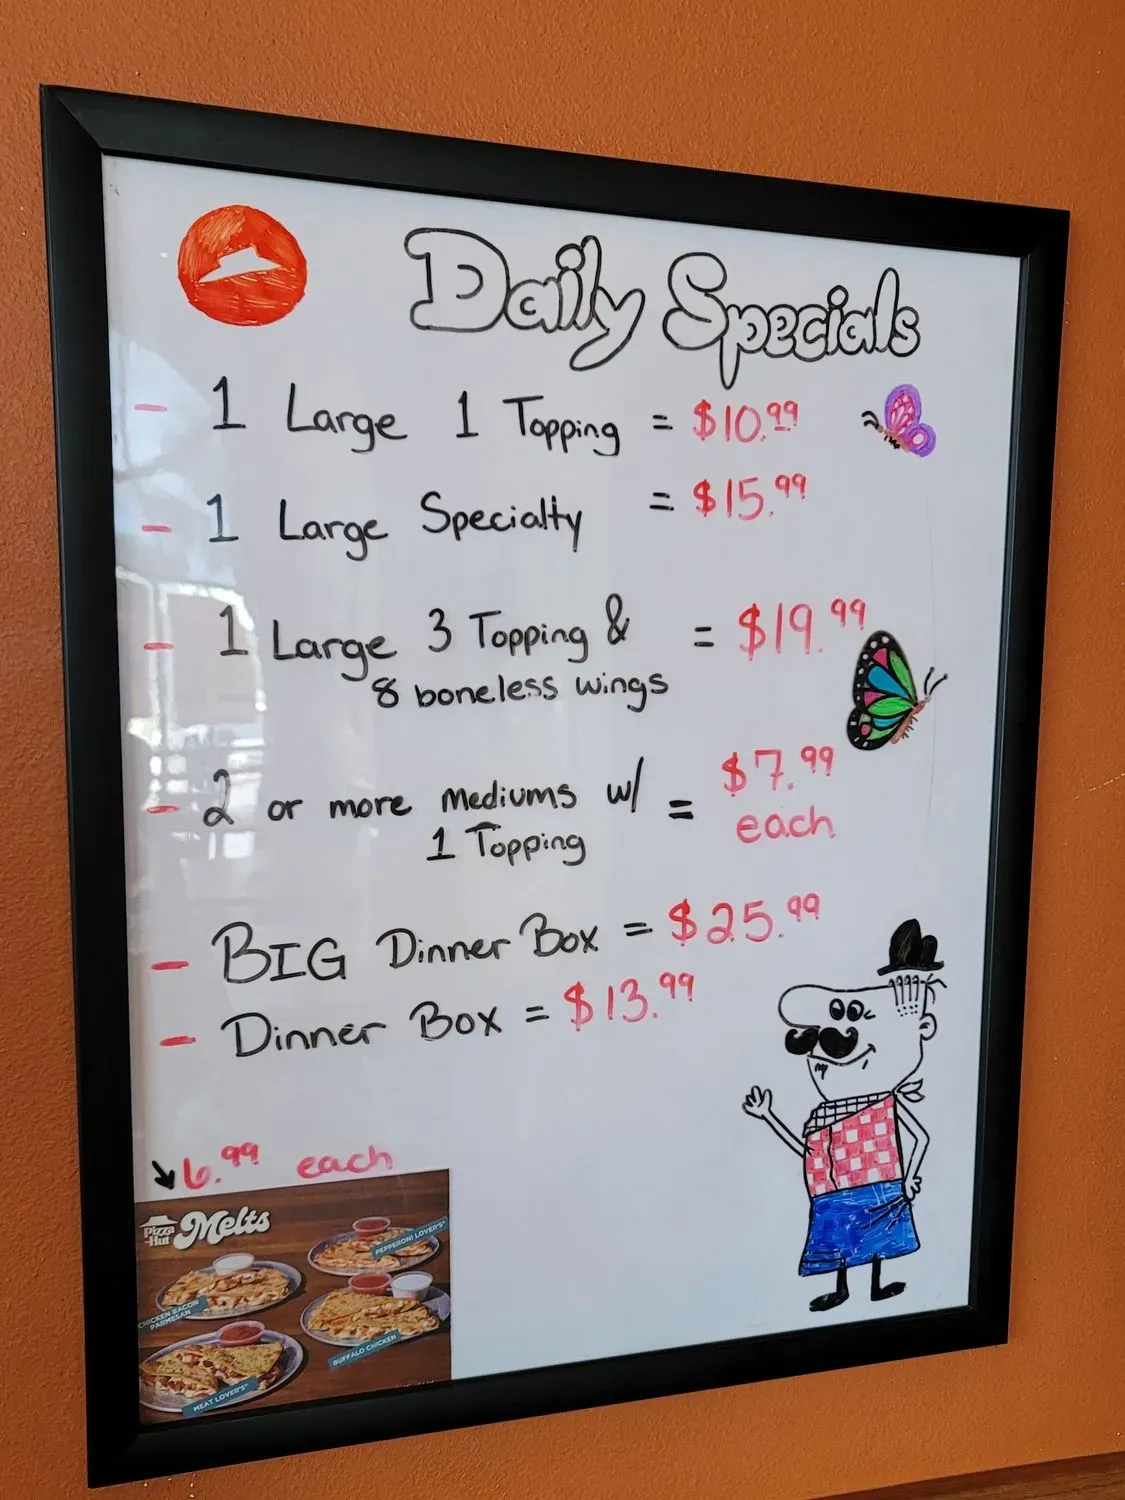 Daily Specials
- 1 Large 1 Topping = $10.99
- 1 Large Specialty = $15.99
- 1 Large 3 Topping & = $19.99
8 boneless wings
- 2 or more mediums w/ = $7.99
1 Topping each
- BIG Dinner Box = $25.99
- Dinner Box = $13.99
6.99 each
Pizza Hut Melts
PEPPERONI LOVER'S
CHICKEN BACON
PARMESAN
BUFFALO CHICKEN
MEAT LOVER'S